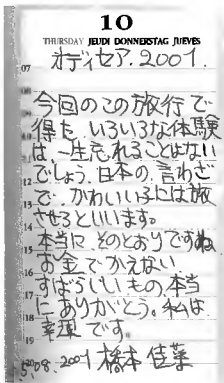 10
THURSDAY JEUDI DONNERSTAG JUEVES
オディセア. 2001.
07
今回のこの旅行で
得た、いろいろな体験
は、一生忘れることはない
でしょう。日本の、言わざ
で、かわいい子には旅
させろといいます。
本当に、そのとおりですね
お金でかえない
すばらしいもの、本当
にありがとう。私は、
幸運です。
5.08.2001 橋本佳菜